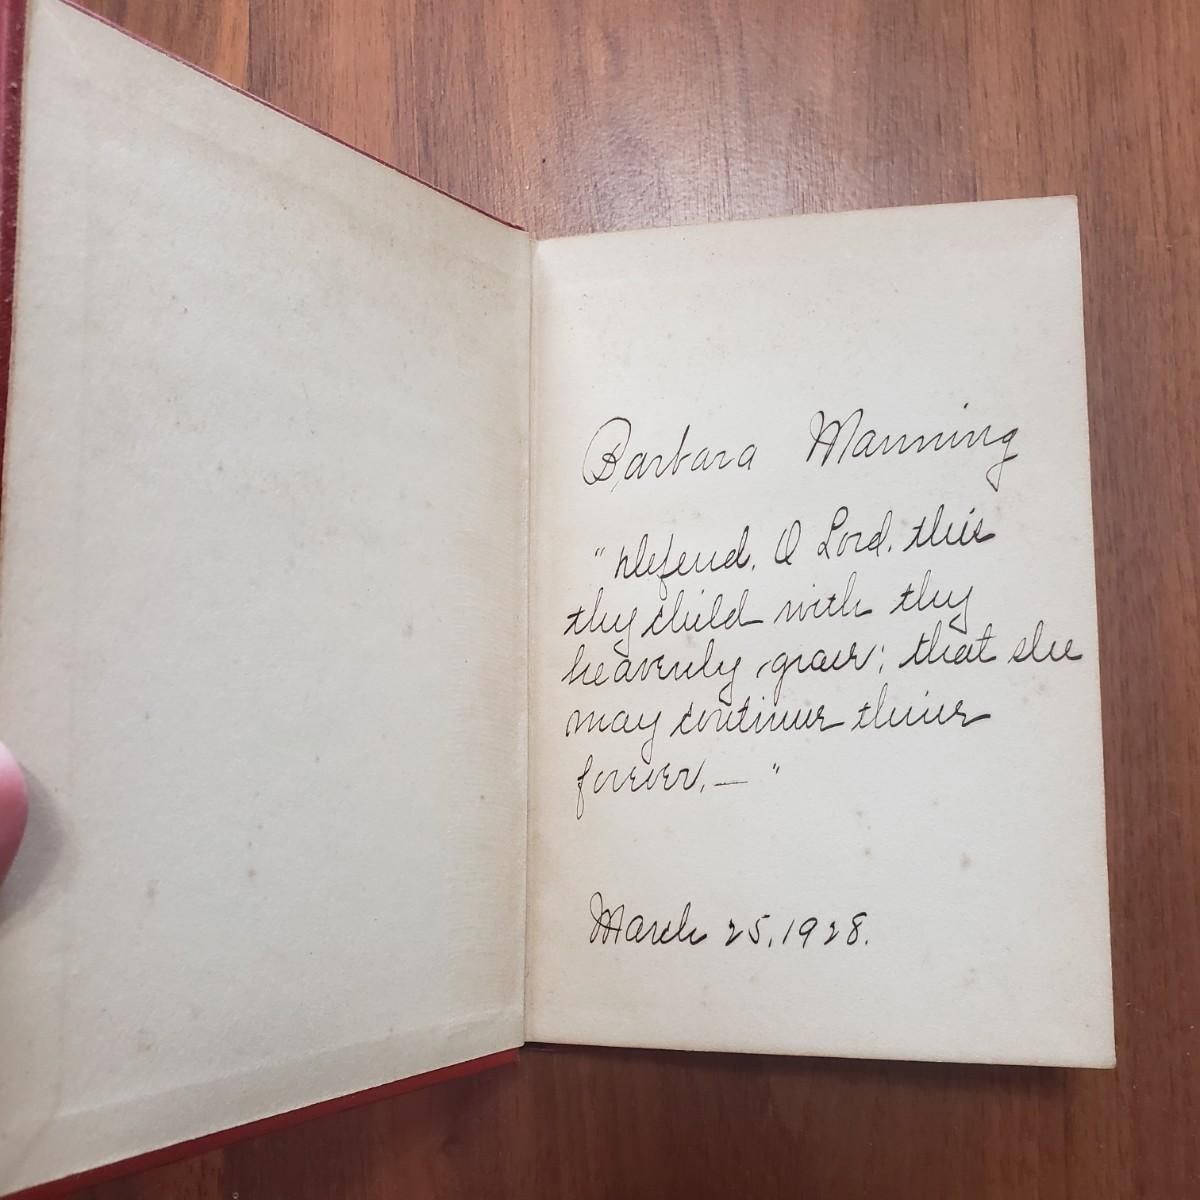 Barbara Manning
"Defend, O Lord, this
thy child with thy
heavenly grace; that she
may continue thine
forever. — "
March 25, 1928.